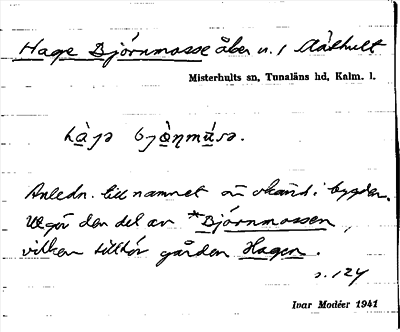 Hage Björnmosse åker n. 1 Aálhult
Misterhults sn, Tunaläns hd, Kalm. l.
hàja bjö̀ṇmúsa.
Anledn. till namnet är okänd i bygden.
Utgör den del av *Björnmossen,
vilken tillhör gården Hagen.
s. 124
Ivar Modéer 1941